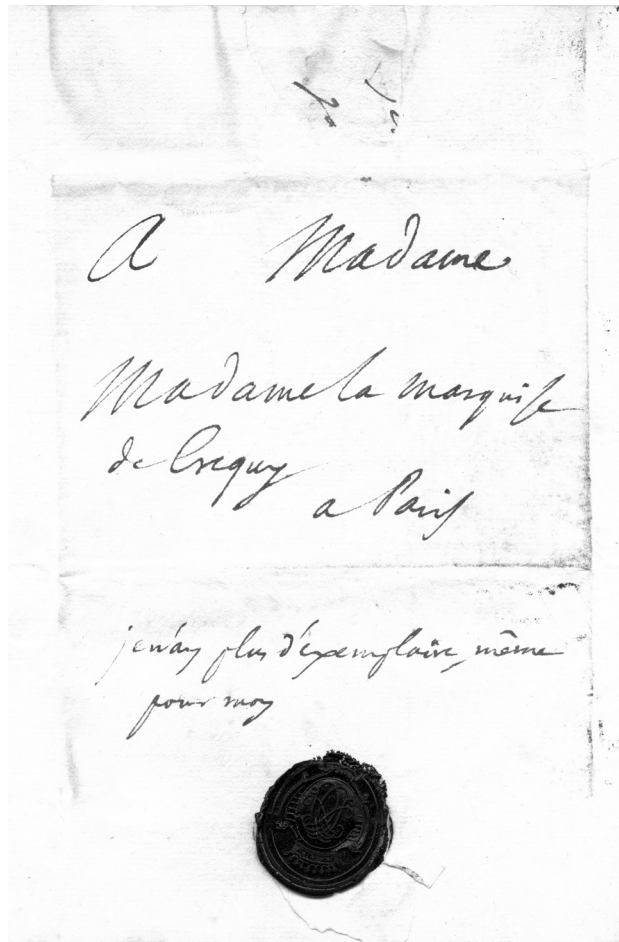 A Madame
Madame la marquise
de Crequy
a Paris
je n'ay plus d'exemplaire, même
pour moy